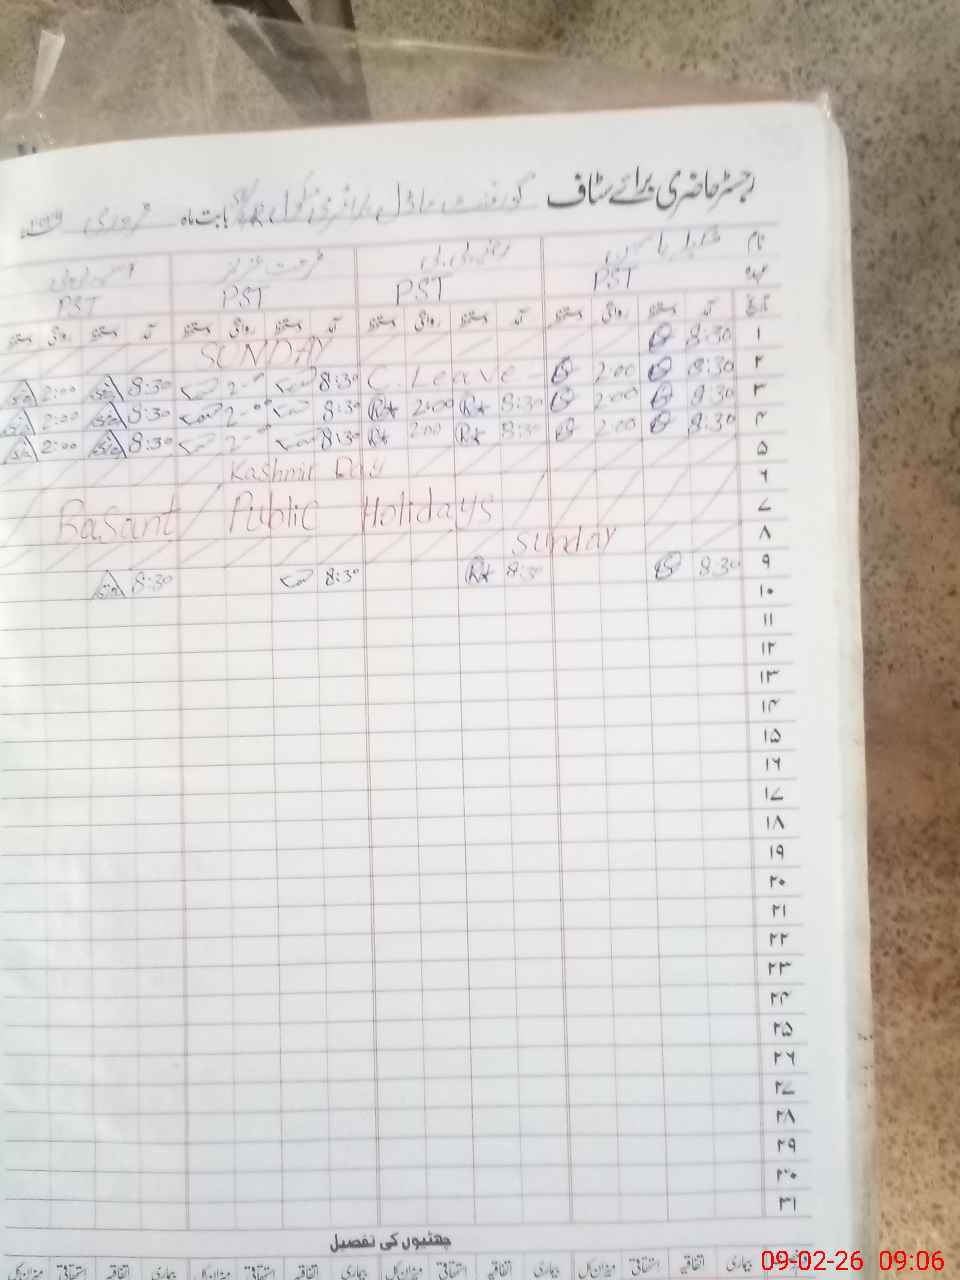 رجسٹر حاضری برائے سٹاف گورنمنٹ ماڈل پرائمری سکول بابت ماہ فروری
نام
عہدہ PST PST PST PST
تاریخ آمد دستخط روانگی دستخط آمد دستخط روانگی دستخط آمد دستخط روانگی دستخط آمد دستخط روانگی دستخط
۱ 8:30 SUNDAY
۲ 8:30 2:00 C. Leave 8:30 2-00 8:30 2:00
۳ 8:30 2:00 8:30 2:00 8:30 2-00 8:30 2:00
۴ 8:30 2:00 8:30 2:00 8:30 2-00 8:30 2:00
۵ Kashmir Day
۶
۷ Basant Public Holidays
۸ Sunday
۹ 8:30 8:30 8:30 8:30
۱۰
۱۱
۱۲
۱۳
۱۴
۱۵
۱۶
۱۷
۱۸
۱۹
۲۰
۲۱
۲۲
۲۳
۲۴
۲۵
۲۶
۲۷
۲۸
۲۹
۳۰
۳۱
چھٹیوں کی تفصیل
بیماری اتفاقیہ استحقاقی میزان کل بیماری اتفاقیہ استحقاقی میزان کل بیماری اتفاقیہ استحقاقی میزان کل بیماری اتفاقیہ استحقاقی میزان کل
09-02-26 09:06